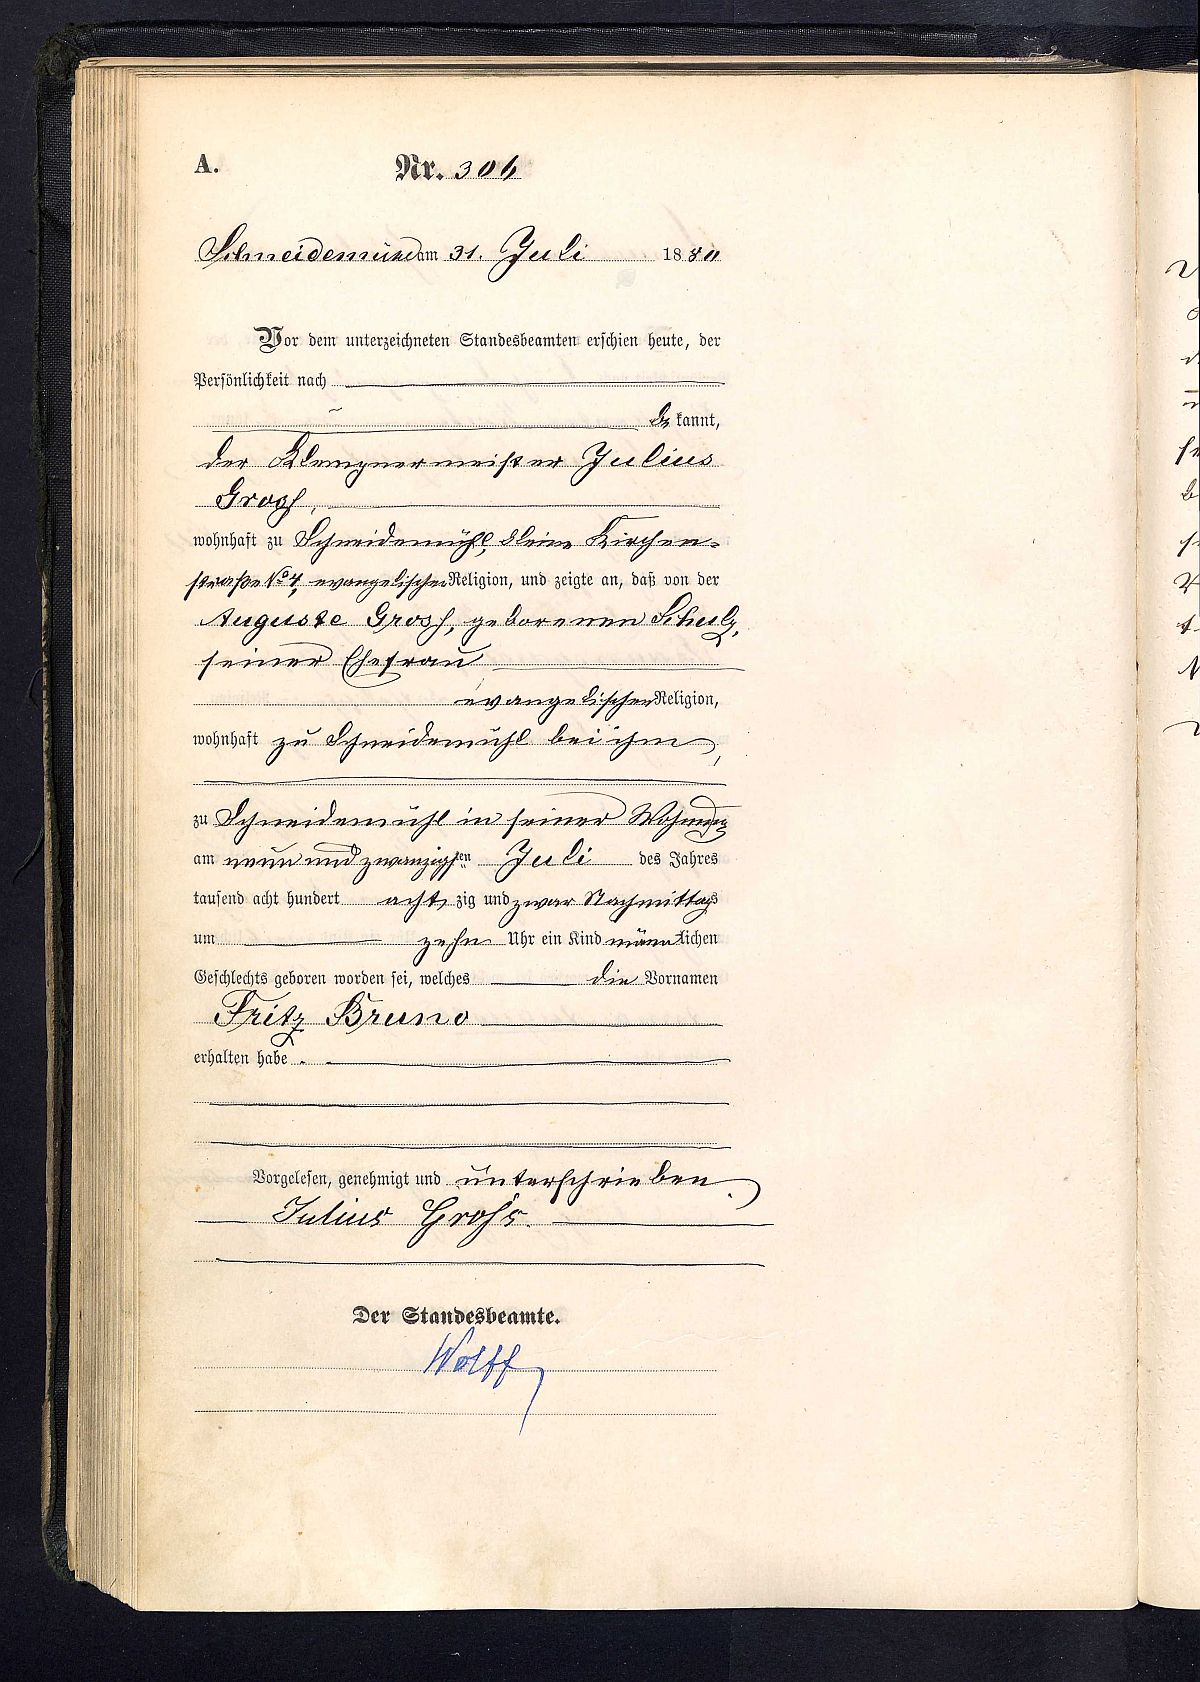 A.
Nr. 306
Schneidemühl am 31. Juli 1880
Vor dem unterzeichneten Standesbeamten erschien heute, der
Persönlichkeit nach
be kannt,
der Klempnermeister Julius
Gross,
wohnhaft zu Schneidemühl, kleine Kirchen-
straße No 4, evangelischer Religion, und zeigte an, daß von der
Auguste Gross, geborenen Schulz,
seiner Ehefrau
evangelischer Religion,
wohnhaft zu Schneidemühl bei ihm,
zu Schneidemühl in seiner Wohnung
am neun und zwanzigsten Juli des Jahres
tausend acht hundert acht zig und zwar Nachmittags
um zehn Uhr ein Kind männlichen
Geschlechts geboren worden sei, welches die Vornamen
Fritz Bruno
erhalten habe.
Vorgelesen, genehmigt und unterschrieben.
Julius Gross.
Der Standesbeamte.
Wolff